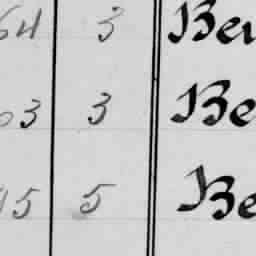 64 3 Ber
03 3 Be
15 5 Be